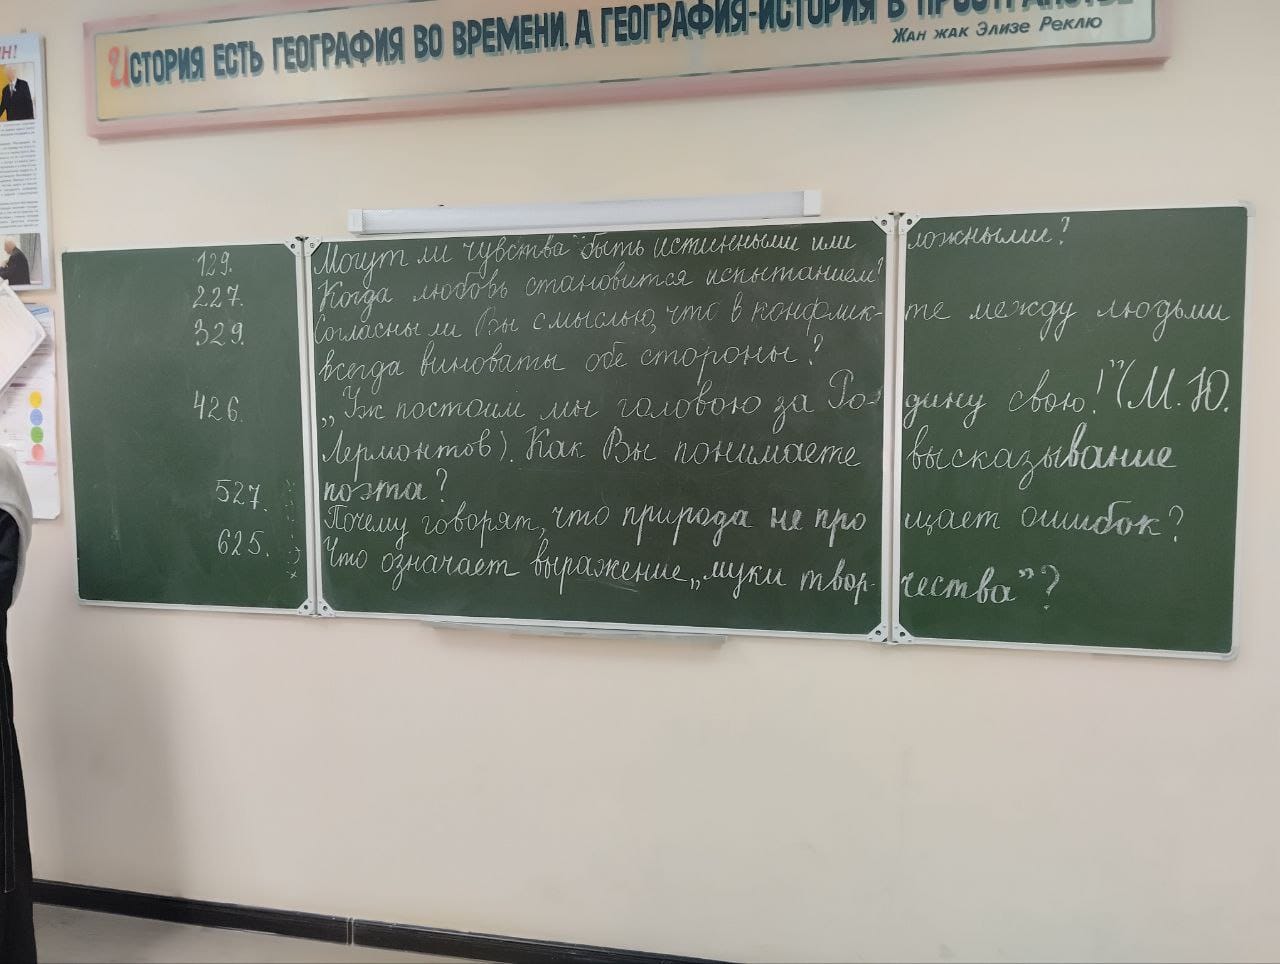 ИСТОРИЯ ЕСТЬ ГЕОГРАФИЯ ВО ВРЕМЕНИ, А ГЕОГРАФИЯ-ИСТОРИЯ В ПРОСТРАНСТВЕ
Жан жак Элизе Реклю
129. Могут ли чувства быть истинными или ложными?
227. Когда любовь становится испытанием?
329. Согласны ли Вы с мыслью, что в конфлик- те между людьми
всегда виноваты обе стороны?
426. „Уж постоим мы головою за Ро- дину свою!" (М. Ю.
Лермонтов). Как Вы понимаете высказывание
527. поэта?
Почему говорят, что природа не про щает ошибок?
625. Что означает выражение „муки твор- чества"?